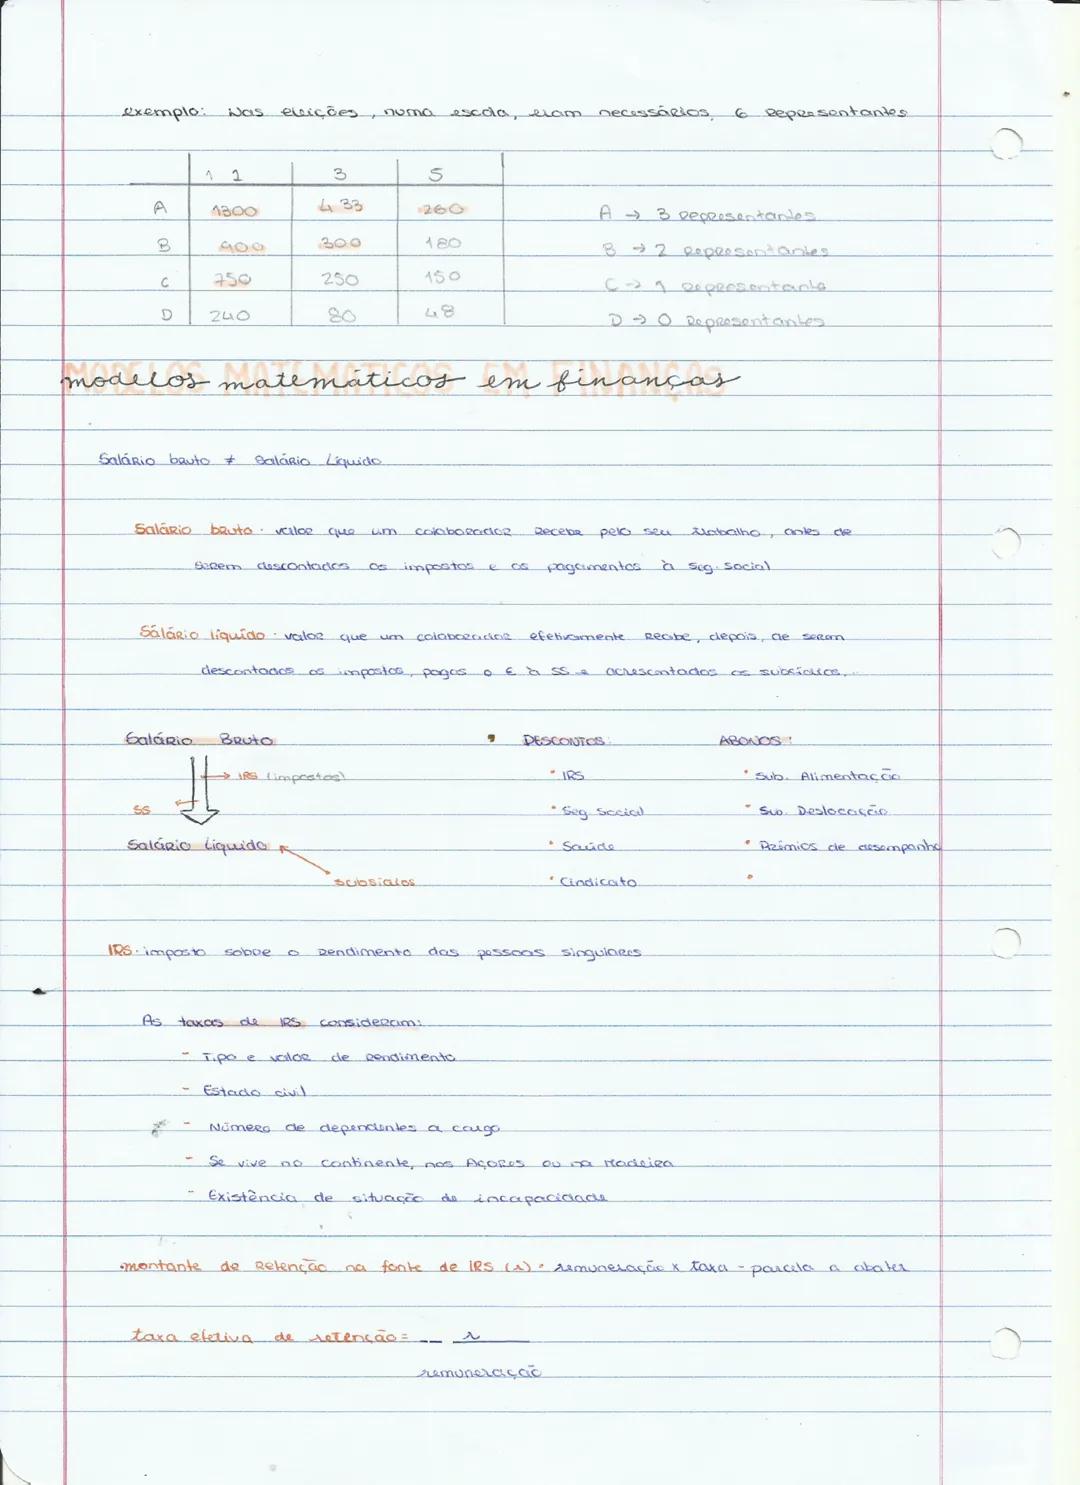 exemplo: Nas eleições, numa escola, eram necessários, 6 representantes
1 3 5
A 1300 433 260 A → 3 representantes
B 900 300 180 B → 2 representantes
C 750 250 150 C → 1 representante
D 240 80 48 D → 0 representantes
MODELOS MATEMÁTICOS EM FINANÇAS
modelos matemáticos em finanças
Salário bruto ≠ Salário Líquido
Salário bruto: valor que um colaborador recebe pelo seu trabalho, antes de
serem descontados os impostos e os pagamentos à seg. social
Sálário líquido: valor que um colaborador efetivamente recebe, depois, de serem
descontados os impostos, pagos o € à SS e acrescentados os subsídios...
Salário Bruto DESCONTOS: ABONOS:
→ IRS (impostos) • IRS • Sub. Alimentação
SS • Seg. Social • Sub. Deslocação
Salário Líquido • Saúde • Prémios de desempenho
subsídios • Cindicato •
IRS: imposto sobre o rendimento das pessoas singulares
As taxas de IRS consideram:
- Tipo e valor de rendimento
- Estado civil
- Número de dependentes a cargo
- Se vive no continente, nos Açores ou na Madeira
- Existência de situação de incapacidade
•montante de Retenção na fonte de IRS (r): remuneração x taxa - parcela a abater
taxa efetiva de retenção = r
remuneração